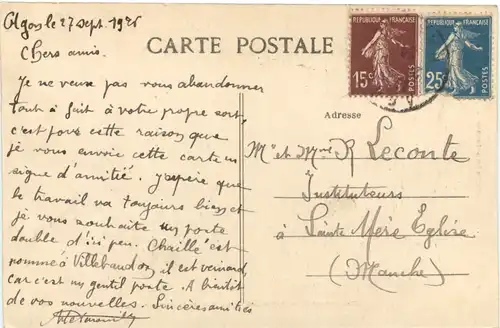 Agon le 27 sept. 1926
Chers amis.
CARTE POSTALE
REPUBLIQUE FRANÇAISE
15c
POSTES
REPUBLIQUE FRANÇAISE
25c
POSTES
Je ne veux pas vous abandonner
tout à fait à votre propre sort,
c'est pour cette raison que
je vous envoie cette carte en
signe d'amitié. J'espère que
le travail va toujours bien et
je vous souhaite un poste
double d'ici peu. Chaillé est
nommé à Villebaudon, il est veinard,
car c'est un gentil poste. A bientôt
de vos nouvelles. Sincères amitiés
Adresse
Mr et Mme R Leconte
Instituteurs
à Sainte Mère Eglise
(Manche)